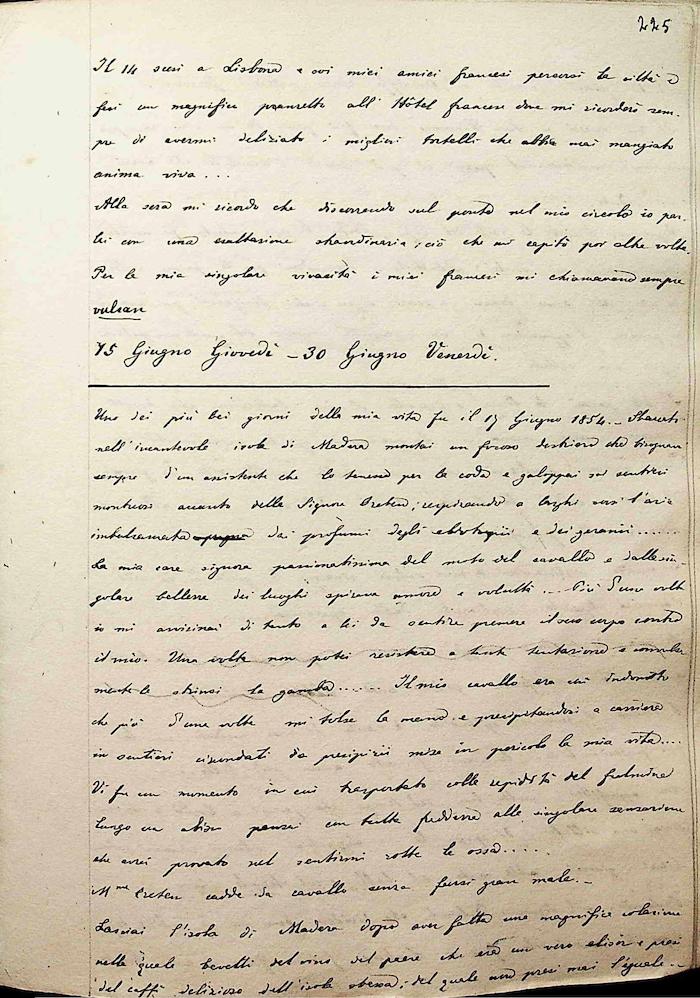 225
Il 14 scesi a Lisbona e coi miei amici francesi percorsi la città e
feci un magnifico pranzetto all' Hôtel francese dove mi ricorderò sem-
pre di avermi deliziato i migliori tortelli che abbia mai mangiato
anima viva ...
Alla sera mi ricordo che discorrendo sul ponte nel mio circolo io par-
lai con una esaltazione straordinaria; ciò che mi capitò più altre volte.
Per la mia singolare vivacità i miei francesi mi chiamavano sempre
vulcan
15 Giugno Giovedì - 30 Giugno Venerdì.
Uno dei più bei giorni della mia vita fu il 17 Giugno 1854. - Sbarcato
nell'incantevole isola di Madera montai un focoso destriero che
sempre d'un assistente che lo tenesse per la coda e galoppai sui sentieri
montuosi accanto della Signora Creten; respirando a larghi sorsi l'aria
imbalsamata dai profumi degli eliotropii e dei geranii ......
La mia cara signora passionatissima del moto del cavallo e dalla sin-
golare bellezza dei luoghi spirava amore e voluttà ... Più d'una volta
io mi avvicinai di tanto a lei da sentire premere il suo corpo contro
il mio. Una volta non potei resistere a tanta tentazione e
mente le strinsi la gamba ...... Il mio cavallo era così indomito
che più d'una volta mi tolse la mano e precipitandosi a carriera
in sentieri circondati da precipizii mise in pericolo la mia vita....
Vi fu un momento in cui trasportato colla rapidità del fulmine
lungo un abisso pensai con tutta freddezza alla singolare sensazione
che avrei provato nel sentirmi rotte le ossa.....
Mme Creten cadde da cavallo senza farsi gran male. -
Lasciai l'isola di Madera dopo aver fatto una magnifica colazione
nella quale bevetti del vino del paese che era un vero elisir e presi
del caffè delizioso dell'isola stessa; del quale non presi mai l'eguale...